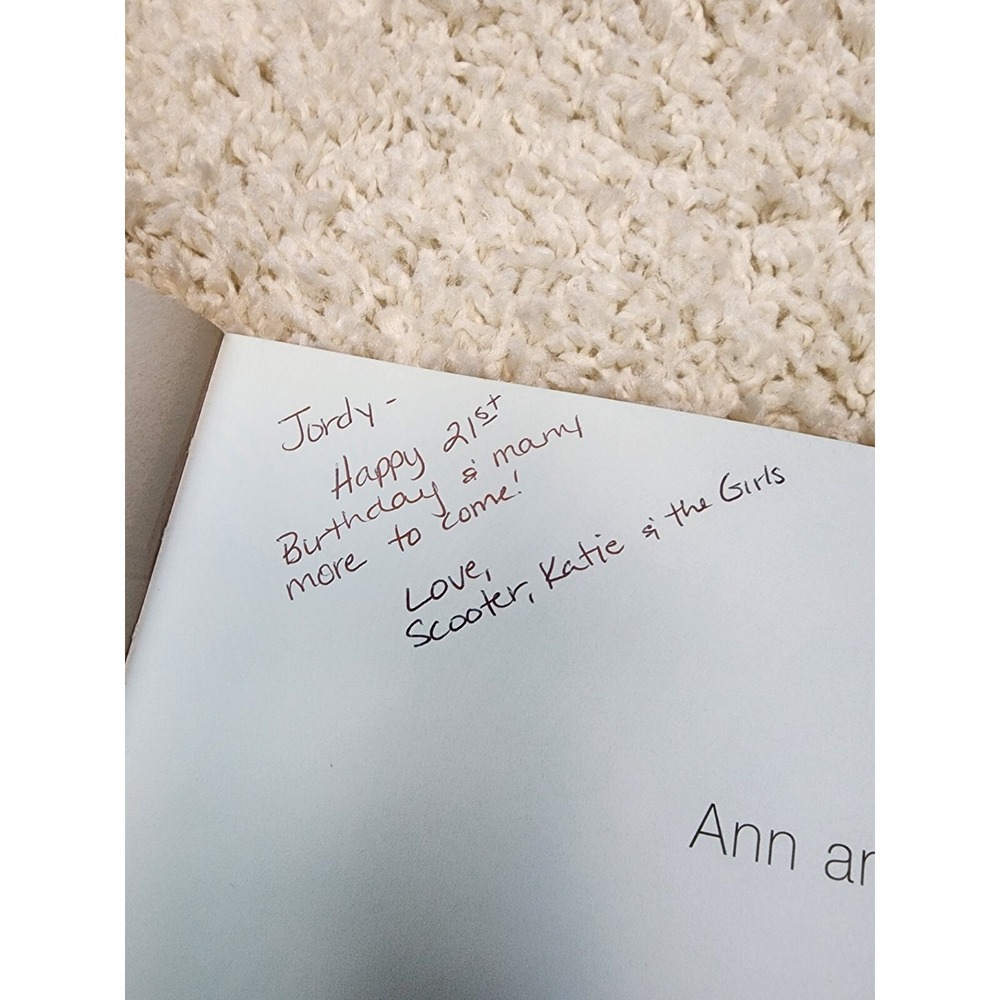 Jordy -
Happy 21st
Birthday & many
more to come!
Love,
Scooter, Katie & the Girls
Ann ar